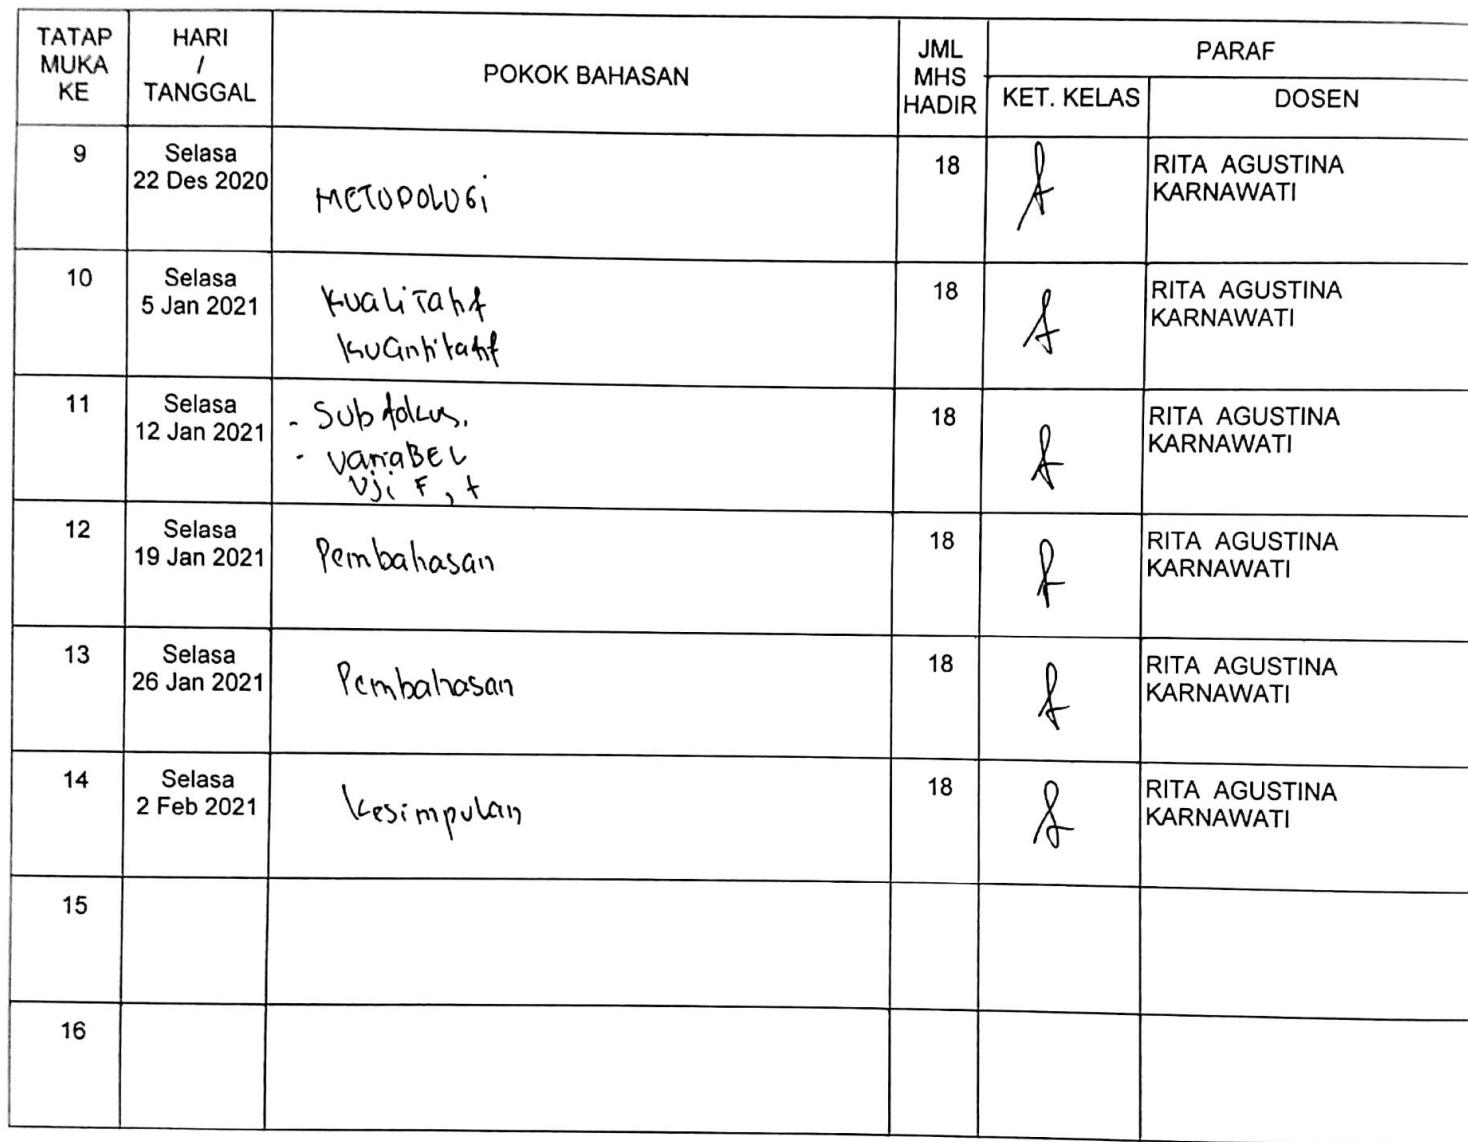 TATAP MUKA KE
HARI / TANGGAL
POKOK BAHASAN
JML MHS HADIR
PARAF
KET. KELAS
DOSEN
9
Selasa
22 Des 2020
METODOLOGi
18
RITA AGUSTINA
KARNAWATI
10
Selasa
5 Jan 2021
Kualitatif
Kuantitatif
18
RITA AGUSTINA
KARNAWATI
11
Selasa
12 Jan 2021
- Sub fokus.
- VariaBEL
Uji F, t
18
RITA AGUSTINA
KARNAWATI
12
Selasa
19 Jan 2021
Pembahasan
18
RITA AGUSTINA
KARNAWATI
13
Selasa
26 Jan 2021
Pembahasan
18
RITA AGUSTINA
KARNAWATI
14
Selasa
2 Feb 2021
Kesimpulan
18
RITA AGUSTINA
KARNAWATI
15
16